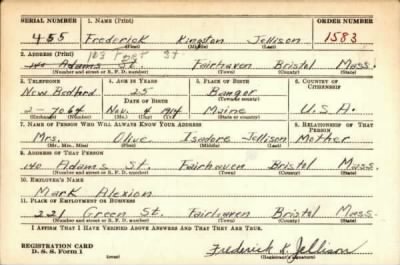 SERIAL NUMBER 1. NAME (Print) ORDER NUMBER
455 Frederick Kingston Jellison 1583
(First) (Middle) (Last)
2. ADDRESS (Print)
140 Adams St. Fairhaven Bristol Mass.
(Number and street or R. F. D. number) (Town) (County) (State)
3. TELEPHONE 4. AGE IN YEARS 5. PLACE OF BIRTH 6. COUNTRY OF CITIZENSHIP
New Bedford 25 Bangor
DATE OF BIRTH (Town or county)
2-7064 Nov. 1914 Maine U.S.A.
7. NAME OF PERSON WHO WILL ALWAYS KNOW YOUR ADDRESS 8. RELATIONSHIP OF THAT PERSON
Mrs. Olive Isadore Jellison Mother
(Mr., Mrs., Miss) (First) (Middle) (Last)
9. ADDRESS OF THAT PERSON
140 Adams St. Fairhaven Bristol Mass.
(Number and street or R. F. D. number) (Town) (County) (State)
10. EMPLOYER'S NAME
Mark Alexion
11. PLACE OF EMPLOYMENT OR BUSINESS
221 Green St. Fairhaven Bristol Mass.
(Number and street or R. F. D. number) (Town) (County) (State)
I AFFIRM THAT I HAVE VERIFIED ABOVE ANSWERS AND THAT THEY ARE TRUE.
REGISTRATION CARD
D. S. S. Form 1 (over) Frederick K. Jellison
(Registrant's signature)